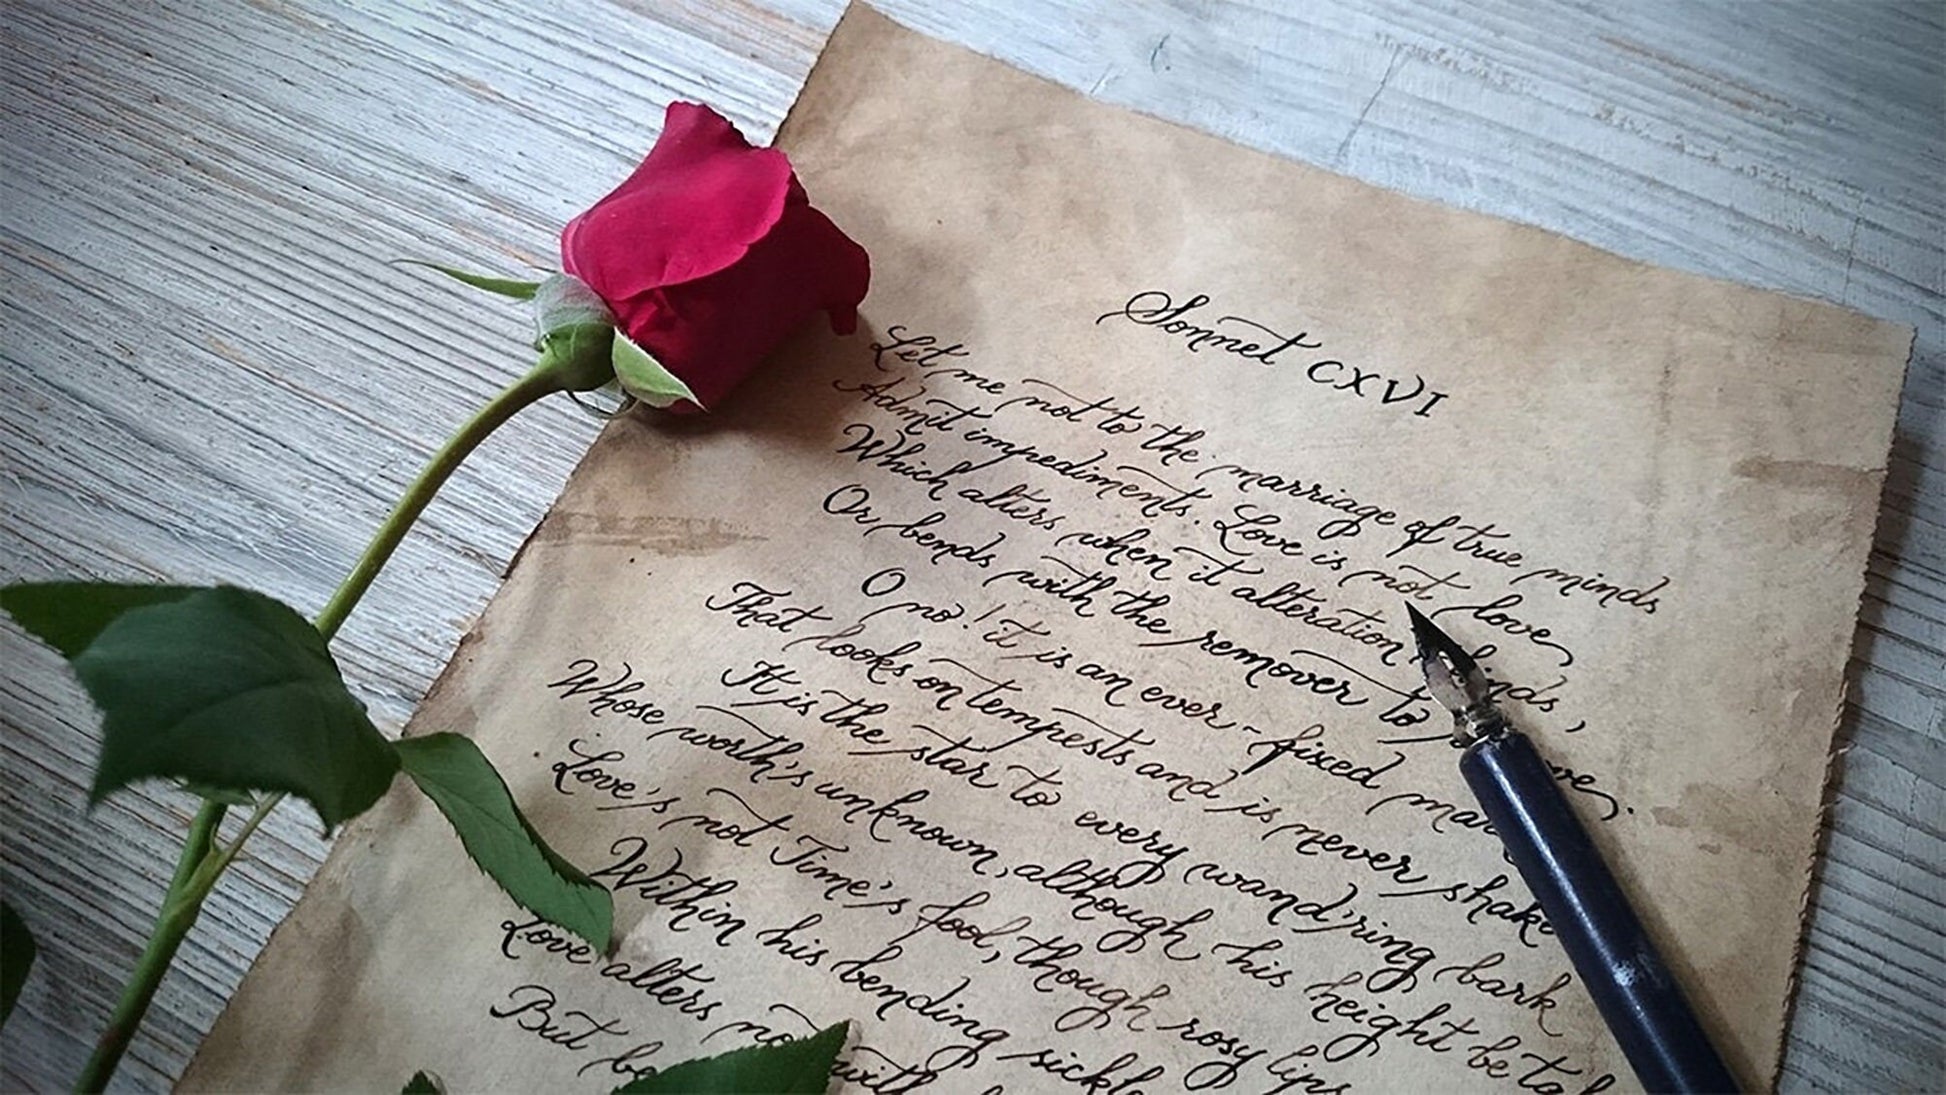 Sonnet CXVI
Let me not to the marriage of true minds
Admit impediments. Love is not love
Which alters when it alteration finds,
Or bends with the remover to
O no! it is an ever-fixed
That looks on tempests and is never shaken
It is the star to every wand'ring bark
Whose worth's unknown, although his height be
Love's not Time's fool, though rosy lips
Within his bending sickle
Love alters not with
But